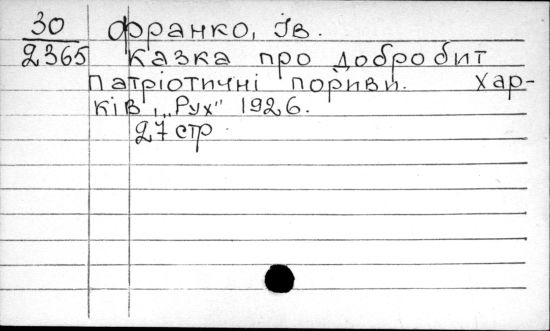 30 Франко, Ів.
2365 Казка про добробит
Патріотичні пориви. Хар-
ків, „Рух" 1926.
27 стр.